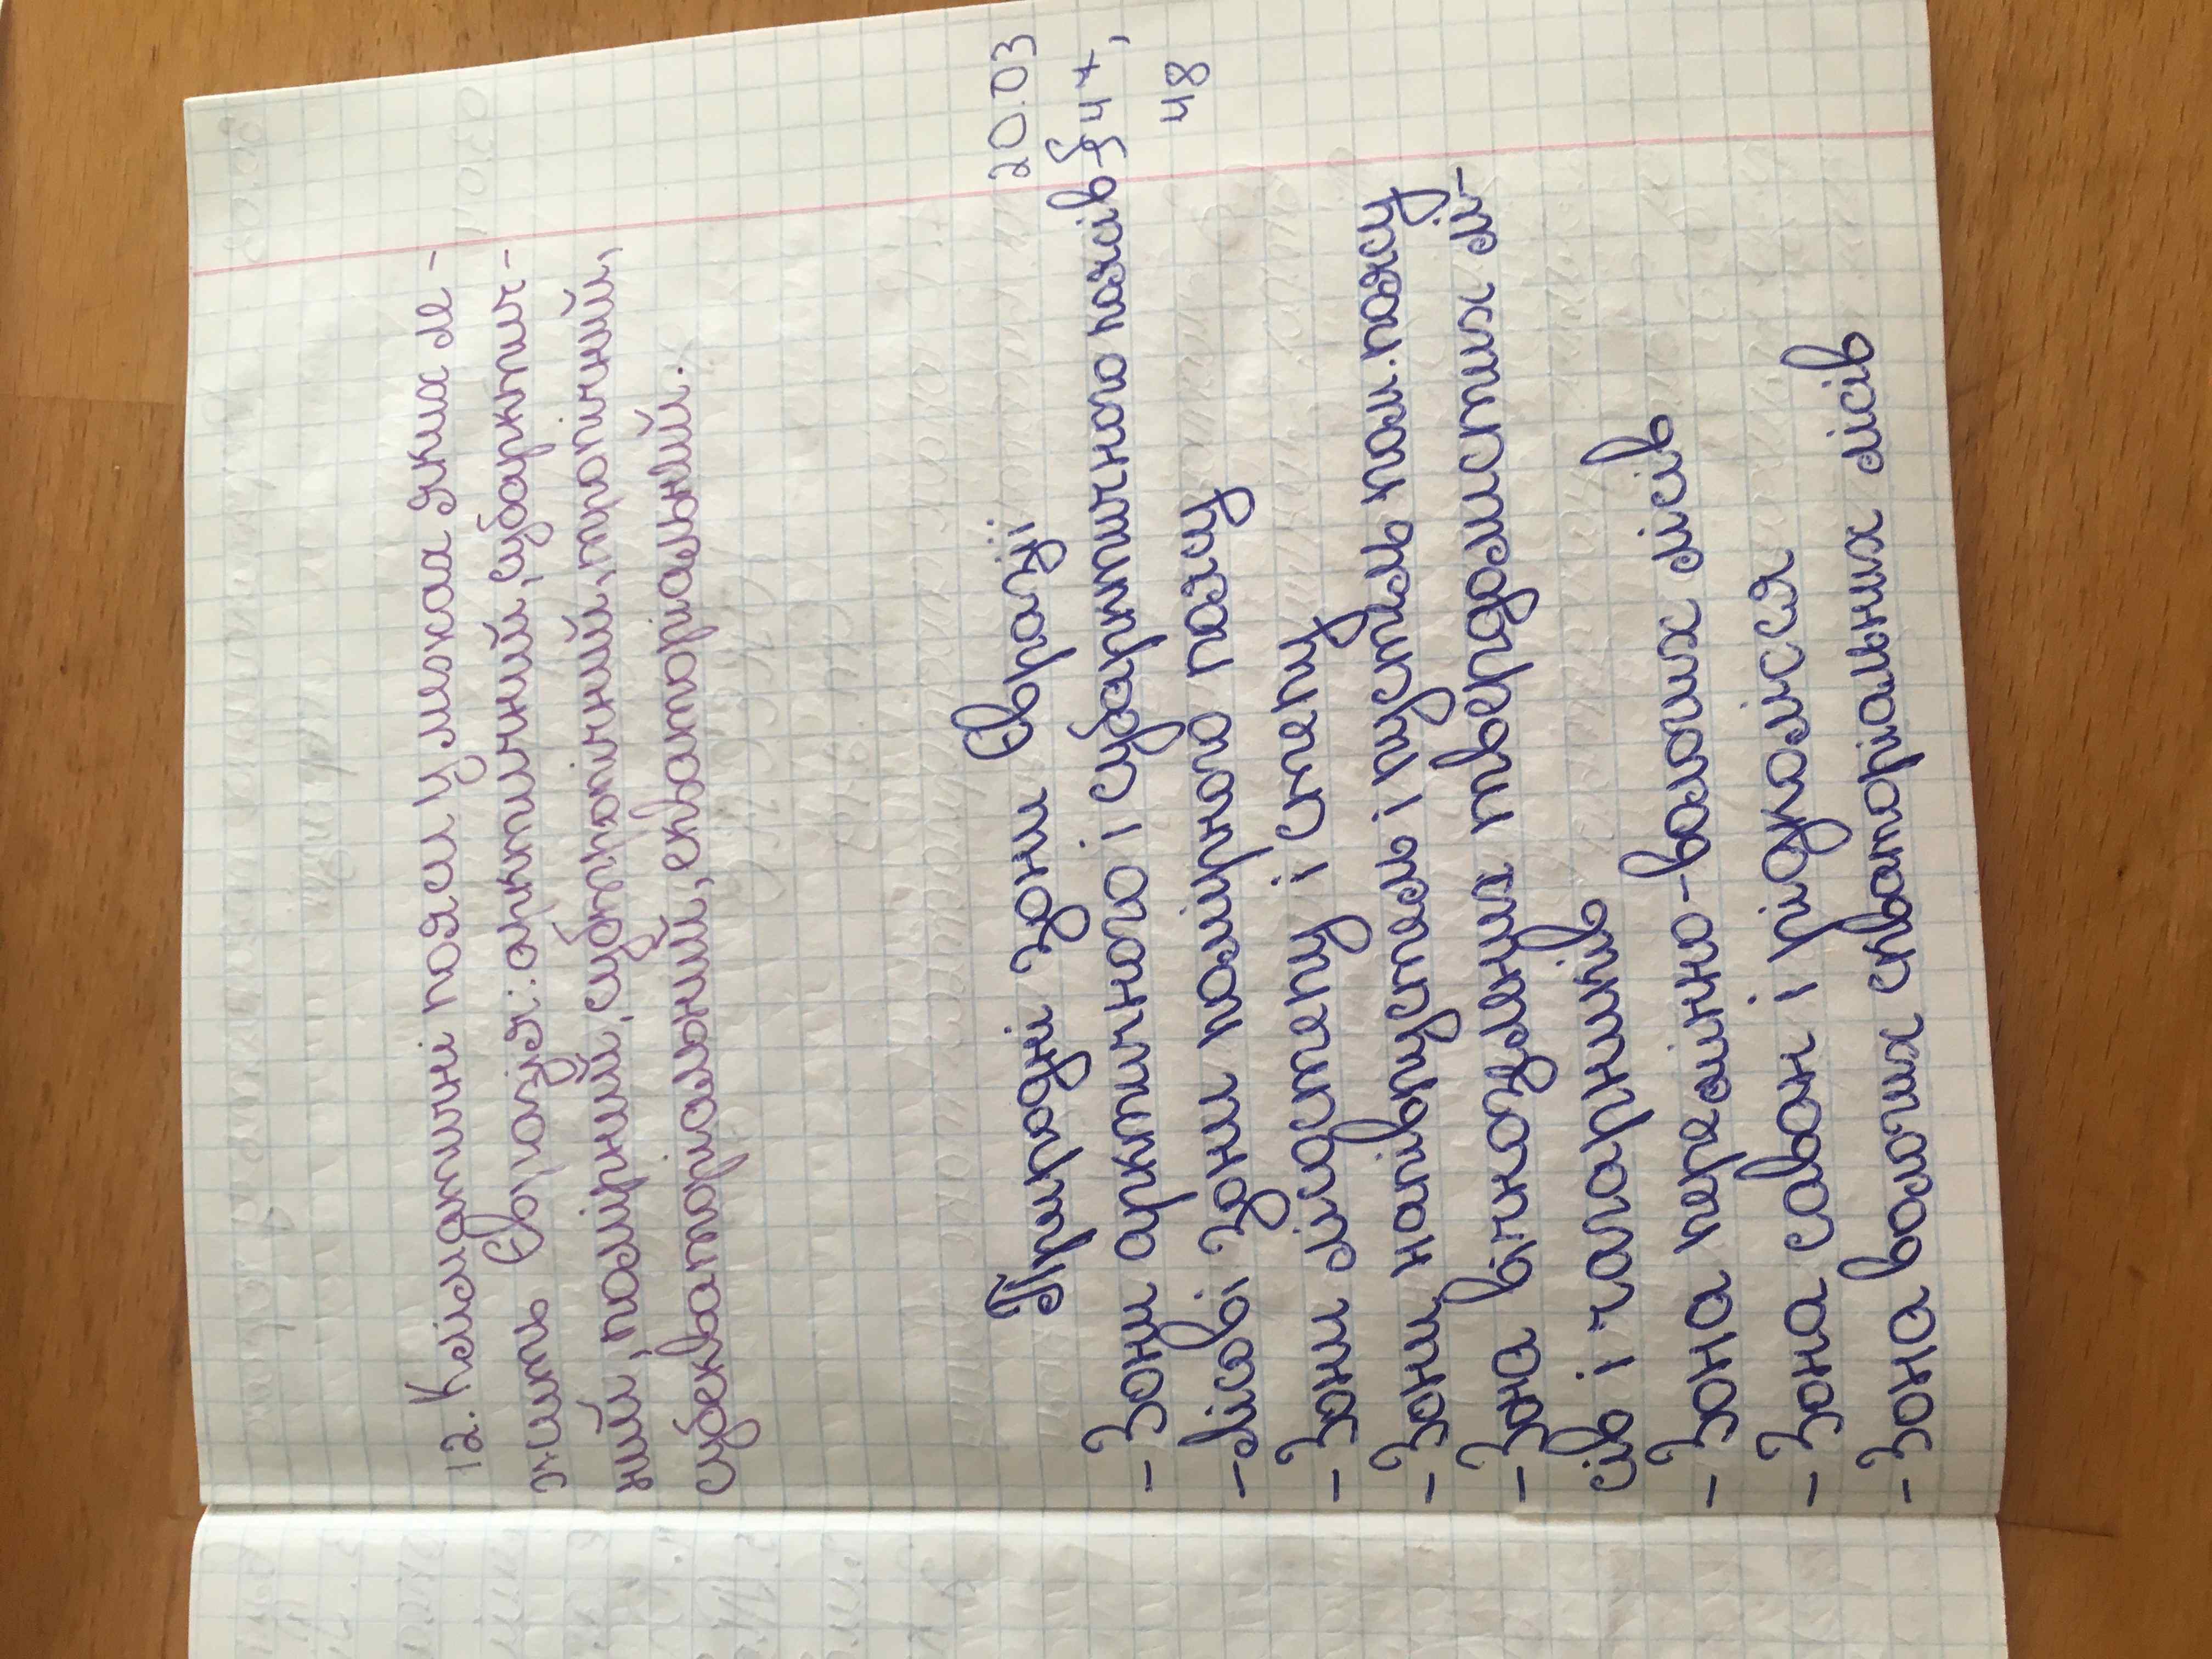 12. Кліматичні пояси у межах яких ле-
жить Євразія: арктичний, субарктич-
ний, помірний, субтропічний, тропічний,
субекваторіальний, екваторіальний.
20.03
Природні зони Євразії:
§47,
48
- Зони арктичного і субарктичного поясів
- Лісові зони помірного поясу
- Зони лісостепу і степу
- Зони напівпустель і пустель пом. поясу
- Зона вічнозелених твердолистих лі-
сів і чагарників
- Зона перемінно-вологих лісів
- Зона саван і рідколісся
- Зона вологих екваторіальних лісів